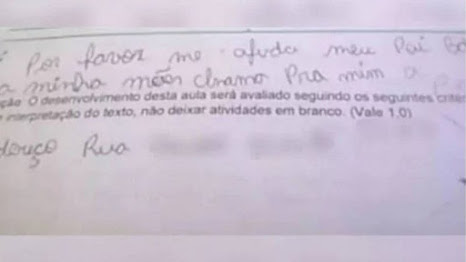 Por favor me ajuda meu Pai Ba
a minha mãe chama Pra mim a
ção O desenvolvimento desta aula será avaliado seguindo os seguintes crité
interpretação do texto, não deixar atividades em branco. (Vale 1,0)
Rua